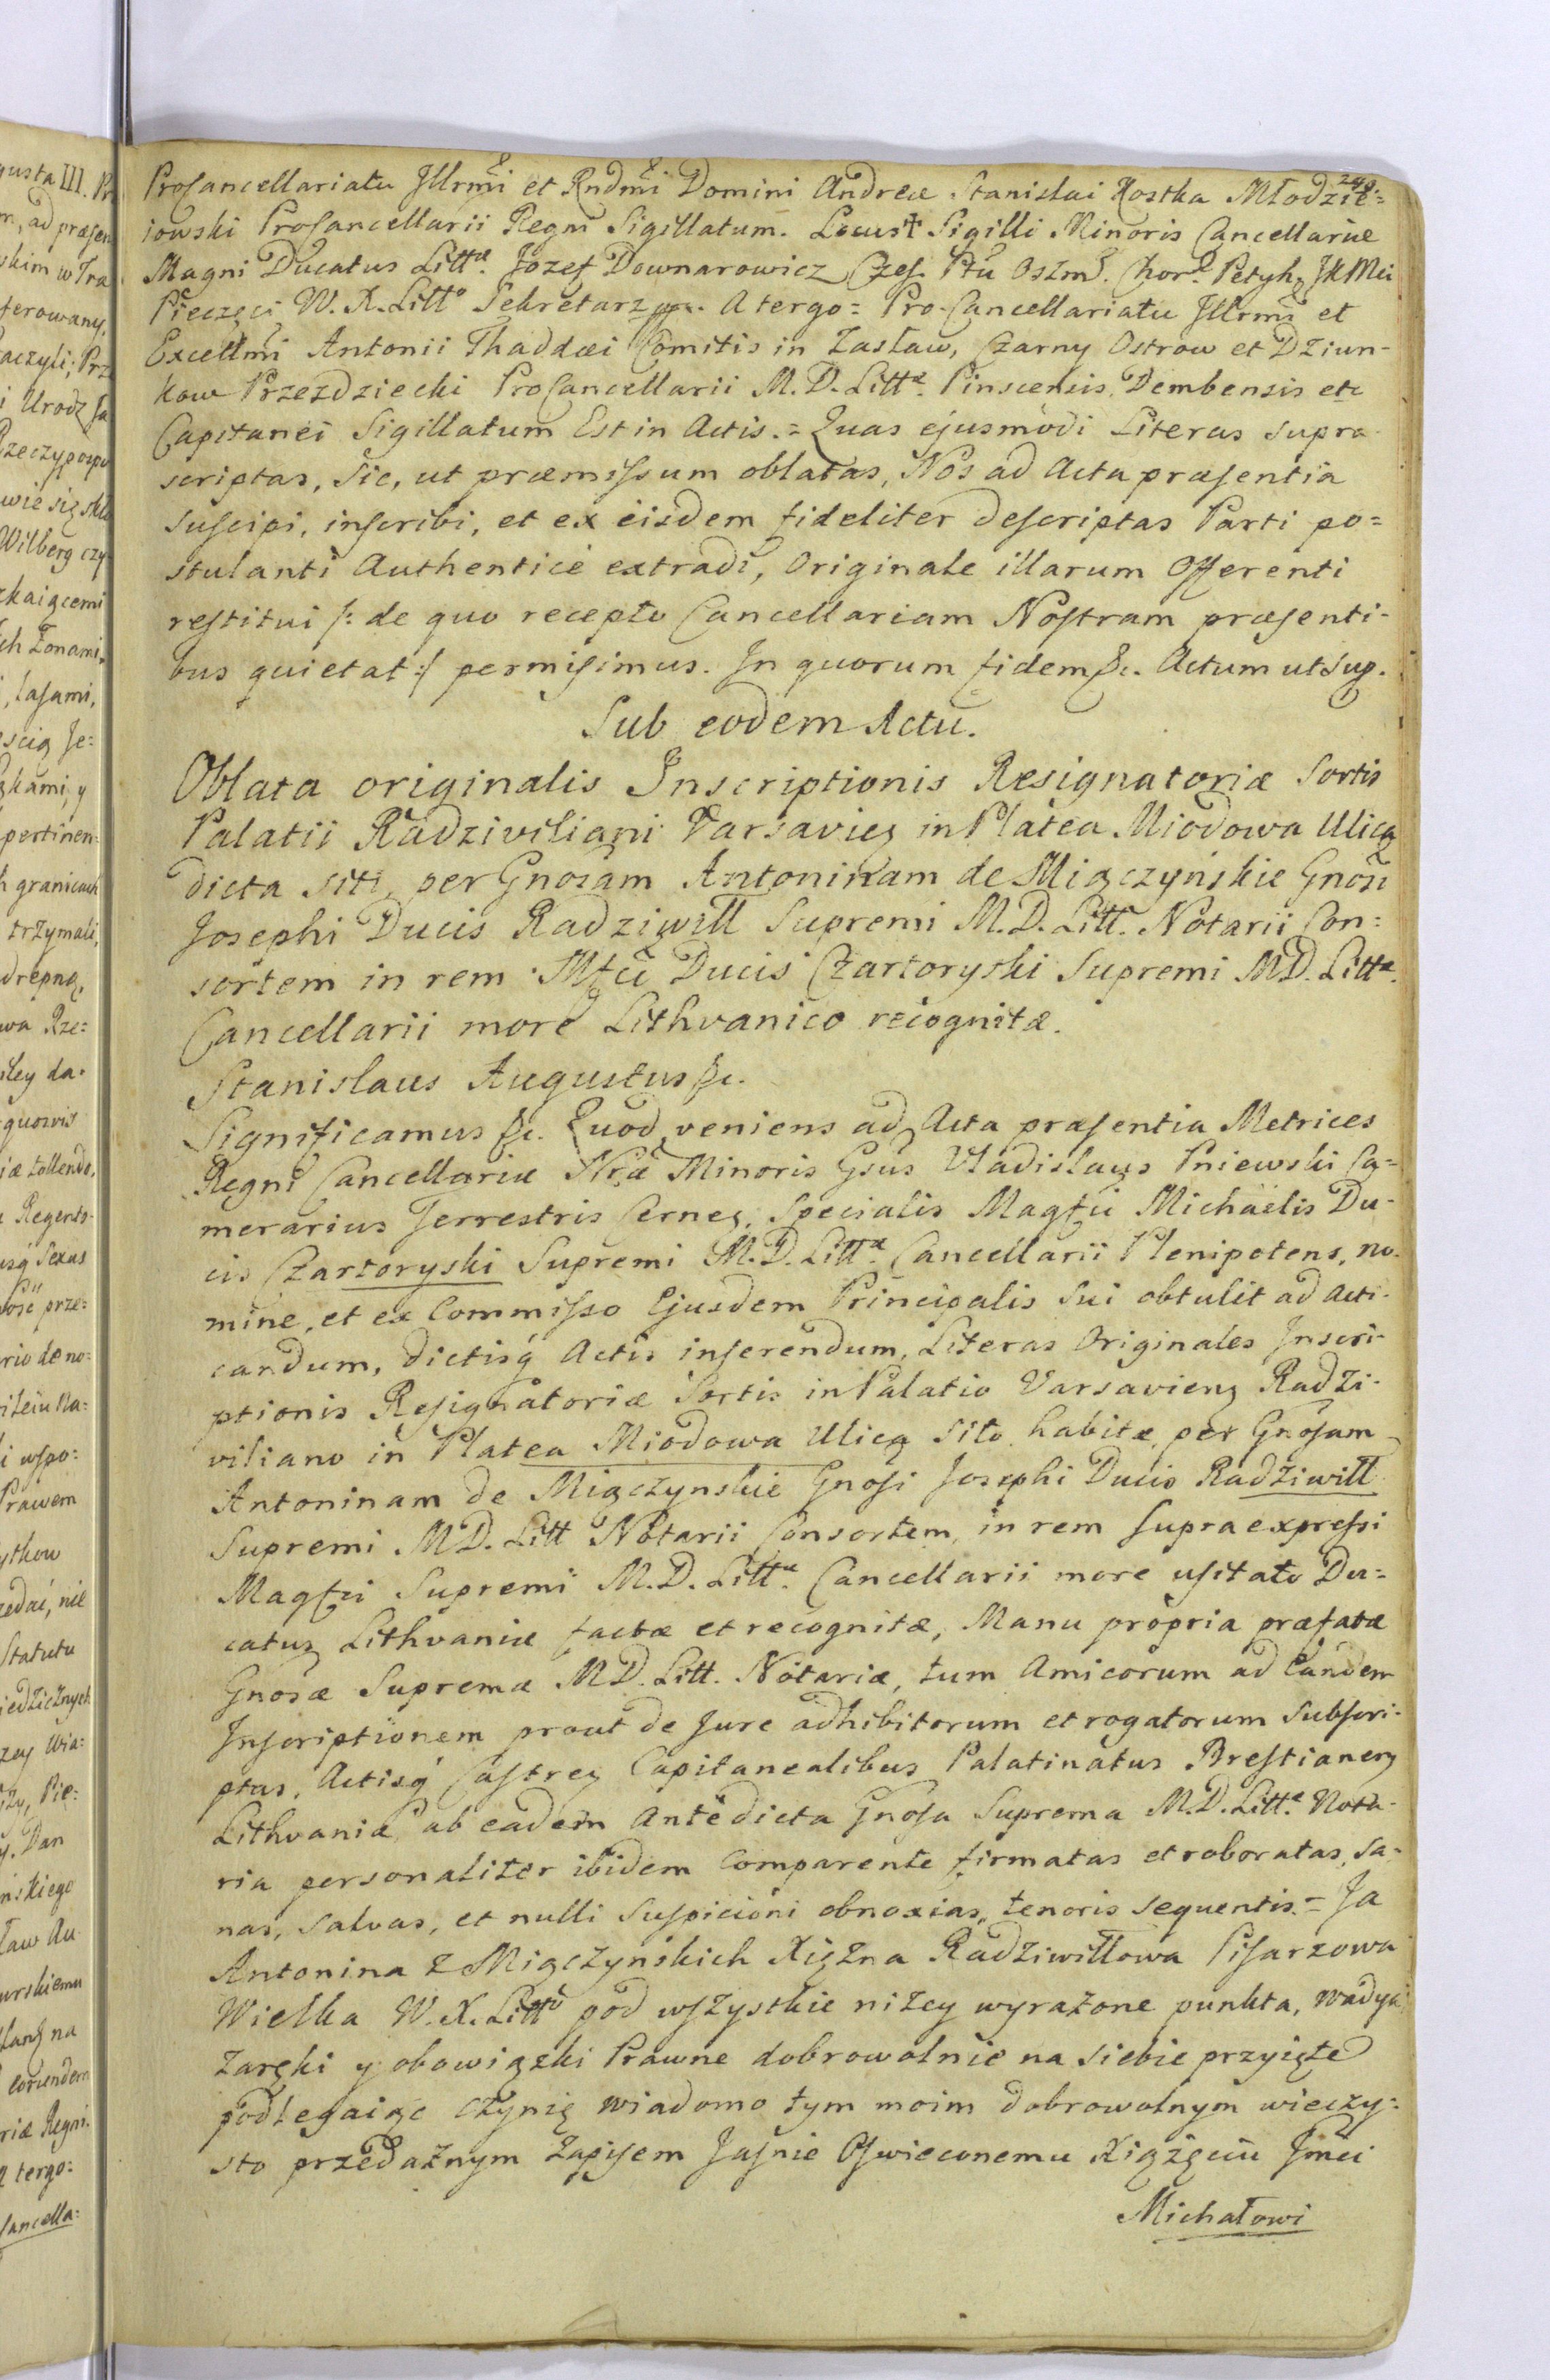 249.
Procancellariatu Jllrmi et Rndmi Domini Andreæ Stanislai Kostka Młodzie=
iowski Procancellarii Regni Sigillatum. Locust Sigilli Minoris Cancellariæ
Magni Ducatus Littæ. Jozef Downarowicz Czes. Ptu Oszm. Chor. Petyh. JKMci
Pieczęci W. X. Litto Sekretarz. A tergo = Pro-Cancellariatu Jllrmi et
Excellmi Antonii Thaddæi Comitis in Zasław, Czarny Ostrow et Dziun-
kow Przezdziecki ProCancellarii M. D. Littæ. Pinscensis, Dembensis etc
Capitanei Sigillatum Est in Actis. = Quas ejusmodi Literas supra-
scriptas, sic, ut præmissum oblatas, Nos ad Acta præsentia
suscipi, inscribi, et ex eisdem fideliter descriptas Parti po=
stulanti Authentice extradi, Originale illarum Offerenti
restitui /: de quo recepto Cancellariam Nostram præsenti-
bus quietat :/ permisimus. In quorum fidem &c. Actum ut sup.
Sub eodem Actu.
Oblata originalis Inscriptionis Resignatoriæ Sortis
Palatii Radziviliani Varsavieȝ in Platea Miodowa Ulicą
dicta siti, per Gnosam Antoninam de Miączyńskie Gnosi
Josephi Ducis Radziwiłł Supremi M.D. Litt. Notarii Con=
sortem in rem Mfci Ducis Czartoryski Supremi MD. Littæ.
Cancellarii more Lithvanico recognitæ.
Stanislaus Augustus &c.
Significamus &c. Quod veniens ad Acta præsentia Metrices
Regni Cancellariæ Nræ Minoris Gsus Vladislaus Pniewski Ca=
merarius Terrestris Cerneȝ, Specialis Magfci Michaëlis Du-
cis Czartoryski Supremi M.D. Littæ. Cancellarii Plenipotens, no-
mine, et ex Commisso Ejusdem Principalis Sui obtulit ad acti-
candum, dictisq́ Actis inserendum, Literas Originales Inscri-
ptionis Resignatoriæ Sortis in Palatio Varsavienȝ Radzi-
viliano in Platea Miodowa Ulicą sito habitæ, per Gnosam
Antoninam de Miączynskie Gnosi Josephi Ducis Radziwiłł
Supremi MD. Litt Notarii Consortem, in rem supraexpressi
Magfci Supremi M.D. Littæ. Cancellarii more usitato Du=
catuȝ Lithvaniæ factæ et recognitæ, Manu propria præfatæ
Gnosæ Supremæ MD. Litt. Notariæ, tum Amicorum ad Eandem
Inscriptionem prout de Jure adhibitorum et rogatorum Subscri-
ptas, Actisq́ Castreȝ Capitanealibus Palatinatus Brestianenȝ
Lithvaniæ, ab eadem Antedicta Gnosa Suprema M.D. Littæ. Nota-
ria personaliter ibidem Comparente firmatas et roboratas, sa-
nas, salvas, et nulli suspicioni obnoxias, tenoris sequentis. = Ja
Antonina z Miączyńskich Xiężna Radziwiłłowa Pisarzowa
Wielka W. X. Litto pod wszystkie niżey wyrażone punkta, wadya,
zaręki y obowiązki Prawne dobrowolnie na siebie przyięte
podlegaiąc czynię wiadomo tym moim dobrowolnym wieczy=
sto przedażnym zapisem Jaśnie Oświeconemu Xiążęciu Jmci
Michałowi